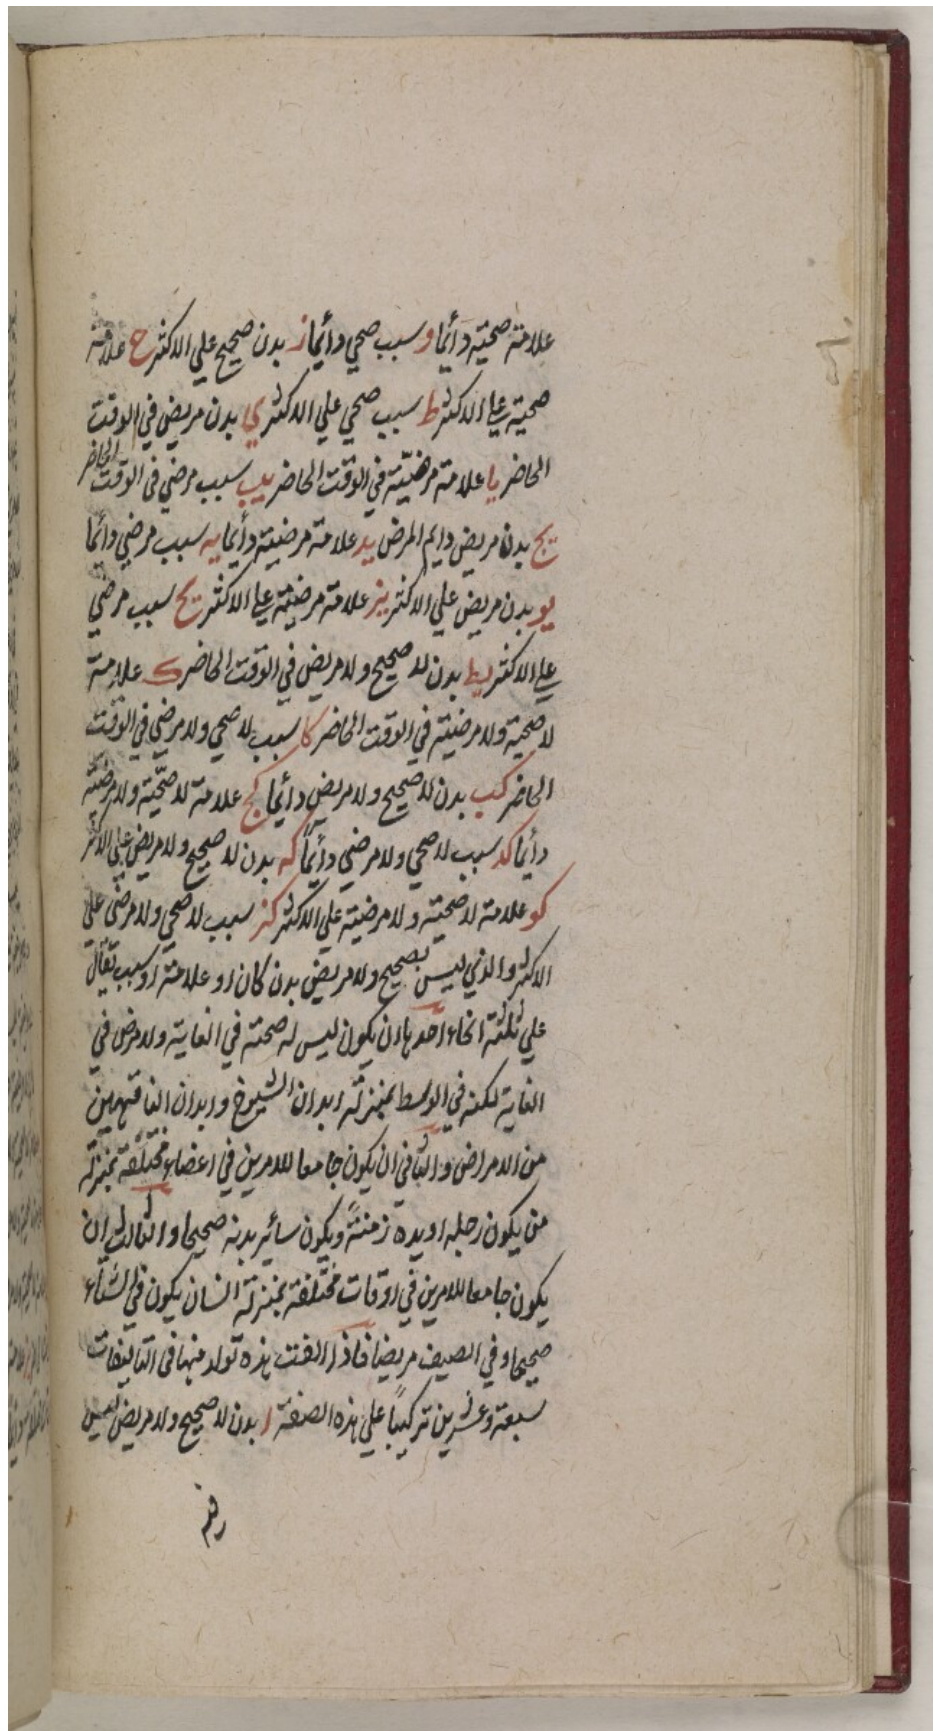 علامة صحيّة دائما و سبب صحي دائما ز بدن صحيح علي الاكثر ح علامة
صحية علي الاكثر ط سبب صحي علي الاكثر ي بدن مريض في الوقت
الحاضر يا علامة مرضيّة في الوقت الحاضر يب سبب مرضي في الوقت الحاضر
يج بدن مريض دايم المرض يد علامة مرضية دائما يه سبب مرضي دائما
يو بدن مريض علي الاكثر يز علامة مرضية علي الاكثر يح سبب مرضي
علي الاكثر يط بدن لا صحيح ولا مريض في الوقت الحاضر ك علامة
لا صحية ولا مرضية في الوقت الحاضر كا سبب لا صحي ولا مرضي في الوقت
الحاضر كب بدن لا صحيح ولا مريض دائما كج علامة لا صحّية ولا مرضية
دائما كد سبب لا صحي ولا مرضي دائماً كه بدن لا صحيح ولا مريض علي الاكثر
كو علامة لا صحية ولا مرضية علي الاكثر كز سبب لا صحي ولا مرضي علي
الاكثر والذي ليس بصحيح ولا مريض بدن كان او علامة او سبب يقال
علي ثلثة انحاء احدها ان يكون ليس له صحة في الغاية ولا مرض في
الغاية لكنه في الوسط بمنزلة ابدان الشيوخ وابدان الناقهين
من الامراض والثاني ان يكون جامعا للامرين في اعضاء مختلفة بمنزلة
من يكون رجله او يده زمنةً ويكون سائر بدنه صحيحا والثالث ان
يكون جامعا للامرين في اوقات مختلفة بمنزلة انسان يكون في الشتاء
صحيحا وفي الصيف مريضا فاذا الفت هذه تولد منها في التاليفات
سبعة وعشرين تركيباً علي هذه الصفة ا بدن لا صحيح ولا مريض ليس